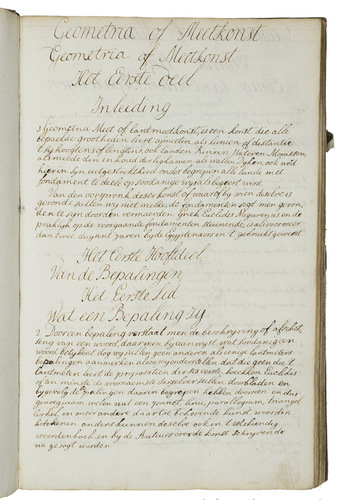 Geometria of Meetkonst
Geometria of Meetkonst
Het Eerste Deel
Inleiding
1 Geometria Meet of lantmeetkonst, is een konst die alle
bepaalde grootheden leert afmeten, als linien of distantie
't sy hoogtens of lengtens, ook landen Rivieren Wateren Morassen
als mede den inhoud der lighamen als wallen dyken, ook wort
hier in syn uitgestrektheid onder begrepen alle lande met
fondament te deele op soodanige wys als begeert wort.
Van den oorspronk deser konst of waar of by wien deselve is
gevonde sullen wy niet melde, de fondamenten segt men gevon
den te syn door den vermaerden Griek Euclides Megarensis en de
praktyk op de voorgaande fondamenten steunende, is al voormeer
dan twee duysent jaren by de Egyptenaren in 't gebruikt geweest
Het Eerste Hooftdeel
Van de Bepalingen
Het Eerste Lid
Wat een Bepaling sy
2. Door een bepaling verstaat men de beschryving of afschet
sing van een woord, daar men by aanwyst wat soodanig een
woord betykent dog wy sullen geen anderen als eenige lantmeters
bepalingen aanmerken alsoo wy onderstellen dat die geen die 't
lantmeten leert de propositien der ses eerste boekken Euclidis
of ten minste de voornaemste derselver stellen doorbladen en
by gevolg de palingen daar in begrepen hebben, door sien en dus
genoegsaam weten wat een punct, linie, parallogram, triangel
cirkel, en meer andere daar toe behorende kunst woorden
betekenen anders kunnen deselve ook in 't wiskundig
woordenboek en by de Auteurs over de konst schryvende
na gesogt worden